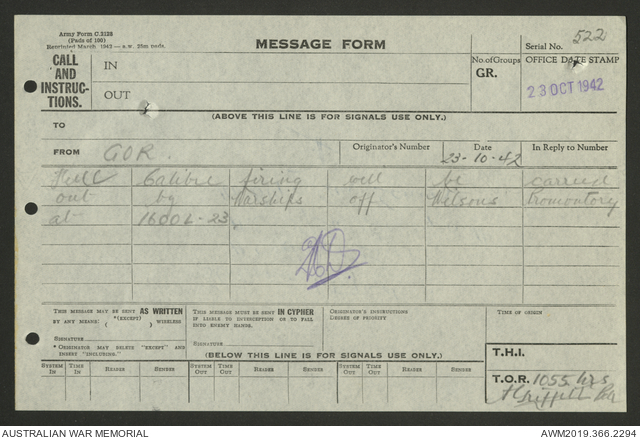 Army Form C.2128
(Pads of 100)
Reprinted March, 1942—a.w. 25m pads.
MESSAGE FORM
Serial No. 522
CALL AND INSTRUC-TIONS.
IN
OUT
No. of Groups
GR.
OFFICE DATE STAMP
23 OCT 1942
(ABOVE THIS LINE IS FOR SIGNALS USE ONLY.)
TO
FROM GOR.
Originator's Number
Date
23-10-42
In Reply to Number
Full Calibre firing will be carried
out by Warships off Wilsons Promontory
at 1600L-23.
THIS MESSAGE MAY BE SENT AS WRITTEN
BY ANY MEANS *(EXCEPT) WIRELESS
( )
SIGNATURE
* ORIGINATOR MAY DELETE "EXCEPT" AND
INSERT "INCLUDING."
THIS MESSAGE MUST BE SENT IN CYPHER
IF LIABLE TO INTERCEPTION OR TO FALL
INTO ENEMY HANDS.
SIGNATURE
ORIGINATOR'S INSTRUCTIONS
DEGREE OF PRIORITY
TIME OF ORIGIN
(BELOW THIS LINE IS FOR SIGNALS USE ONLY.)
T.H.I.
SYSTEM IN TIME IN READER SENDER SYSTEM OUT TIME OUT READER SENDER SYSTEM OUT TIME OUT READER SENDER
T.O.R. 1055 hrs
AUSTRALIAN WAR MEMORIAL
AWM2019.366.2294